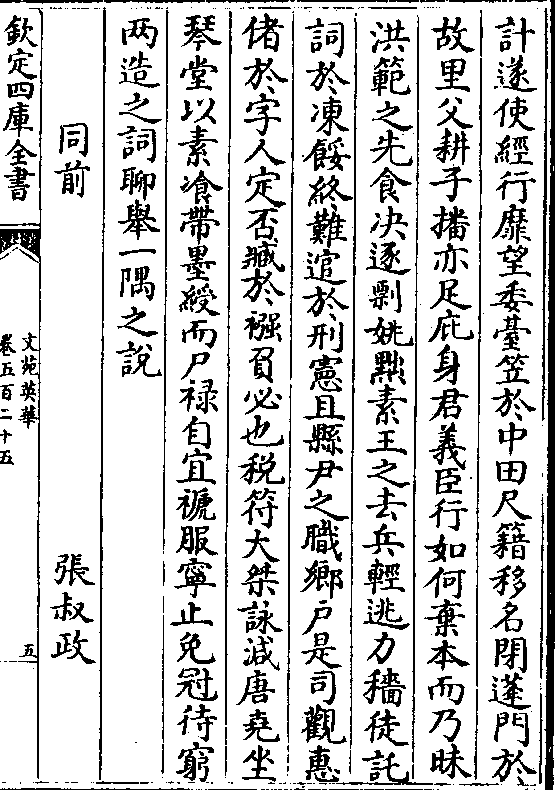 計遂使經行靡望委臺笠於中田尺籍移名閉蓬門於
故里父耕子播亦足庇身君義臣行如何棄本而乃昧
洪範之先食决逐剽姚黜素王之去兵輕逃力穡徒託
詞於凍餒終難逭於刑憲且縣尹之職鄉戶是司觀惠
偖於字人定否臧於襁負必也税符大桀詠減唐堯坐
琴堂以素飡帶墨綬而尸禄自宜褫服寧止免冠待窮
两造之詞聊舉一隅之說
同前 張叔政
欽定四庫全書
文苑英華
卷五百二十五
五